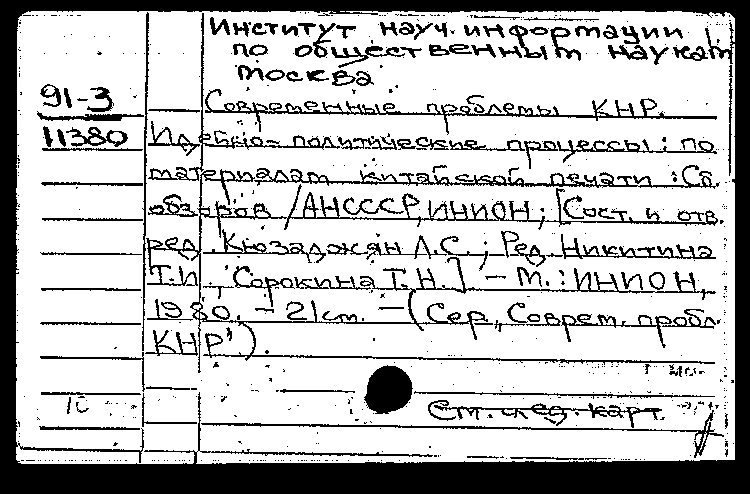 Институт науч. информации
по общественным наукам
Москва
91-3
Современные проблемы КНР.
11380
Идейно-политические процессы: по
материалам китайской печати : Сб.
обзоров / АН СССР, ИНИОН; [Сост. и отв.
ред. Кюзаджян Л.С.; Ред. Никитина
Т.И., Сорокина Т.Н.] – М. : ИНИОН,
1980. – 21 см. – (Сер. "Соврем. пробл.
КНР").
См. след. карт.